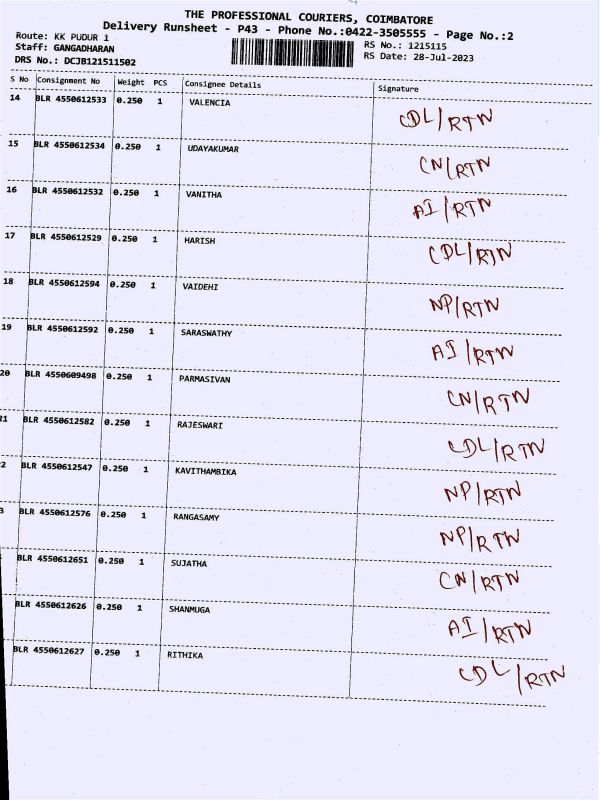 THE PROFESSIONAL COURIERS, COIMBATORE
Delivery Runsheet - P43 - Phone No.:0422-3505555 - Page No.:2
Route: KK PUDUR 1
Staff: GANGADHARAN
DRS No.: DCJB121511502
RS No.: 1215115
RS Date: 28-Jul-2023
S No Consignment No Weight PCS Consignee Details Signature
14 BLR 4550612533 0.250 1 VALENCIA CDL/RTN
15 BLR 4550612534 0.250 1 UDAYAKUMAR CN/RTN
16 BLR 4550612532 0.250 1 VANITHA AI/RTN
17 BLR 4550612529 0.250 1 HARISH CDL/RTN
18 BLR 4550612594 0.250 1 VAIDEHI NP/RTN
19 BLR 4550612592 0.250 1 SARASWATHY AI/RTN
20 BLR 4550609498 0.250 1 PARMASIVAN CN/RTN
21 BLR 4550612582 0.250 1 RAJESWARI CDL/RTN
2 BLR 4550612547 0.250 1 KAVITHAMBIKA NP/RTN
3 BLR 4550612576 0.250 1 RANGASAMY NP/RTN
BLR 4550612651 0.250 1 SUJATHA CN/RTN
BLR 4550612626 0.250 1 SHANMUGA AI/RTN
BLR 4550612627 0.250 1 RITHIKA CDL/RTN